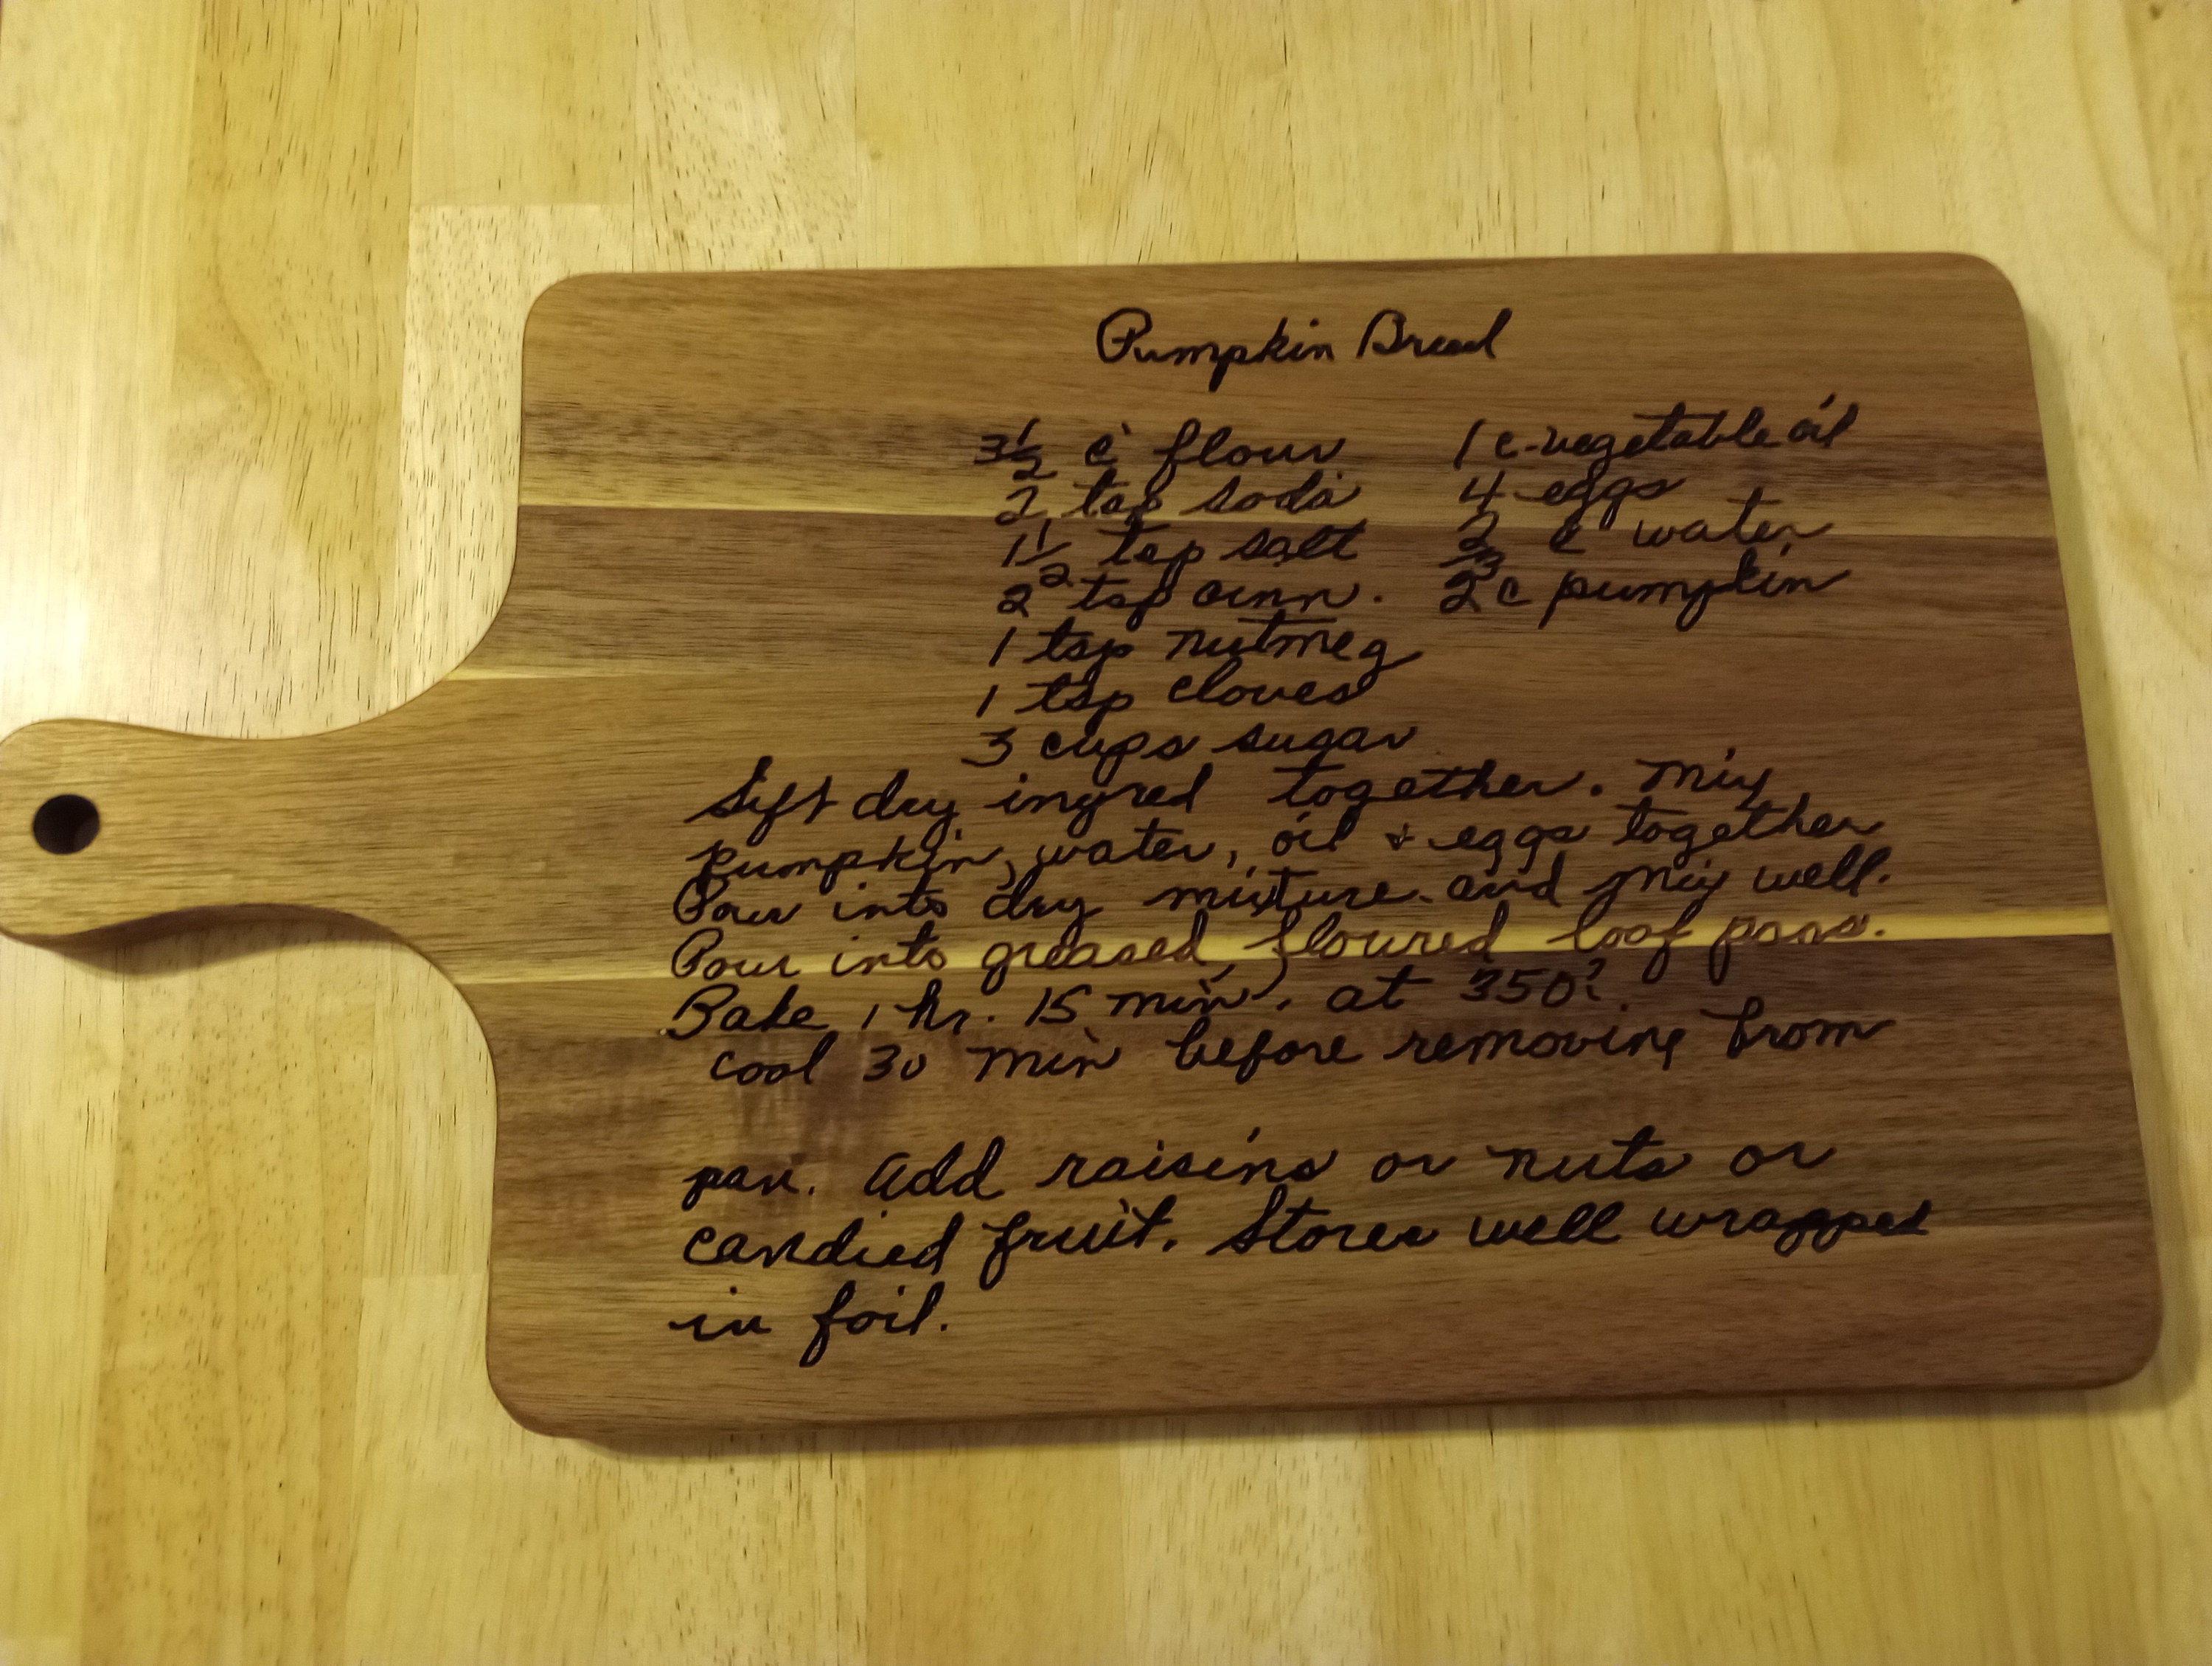 Pumpkin Bread
3 1/2 c flour 1 c vegetable oil
2 tsp soda 4 eggs
1 1/2 tsp salt 2/3 c water
2 tsp cinn. 2 c pumpkin
1 tsp nutmeg
1 tsp cloves
3 cups sugar
Sift dry ingred together. Mix
pumpkin, water, oil + eggs together
Pour into dry mixture and mix well.
Pour into greased, floured loaf pans.
Bake 1 hr. 15 min. at 350°.
Cool 30 min before removing from
pan. Add raisins or nuts or
candied fruit. Stores well wrapped
in foil.